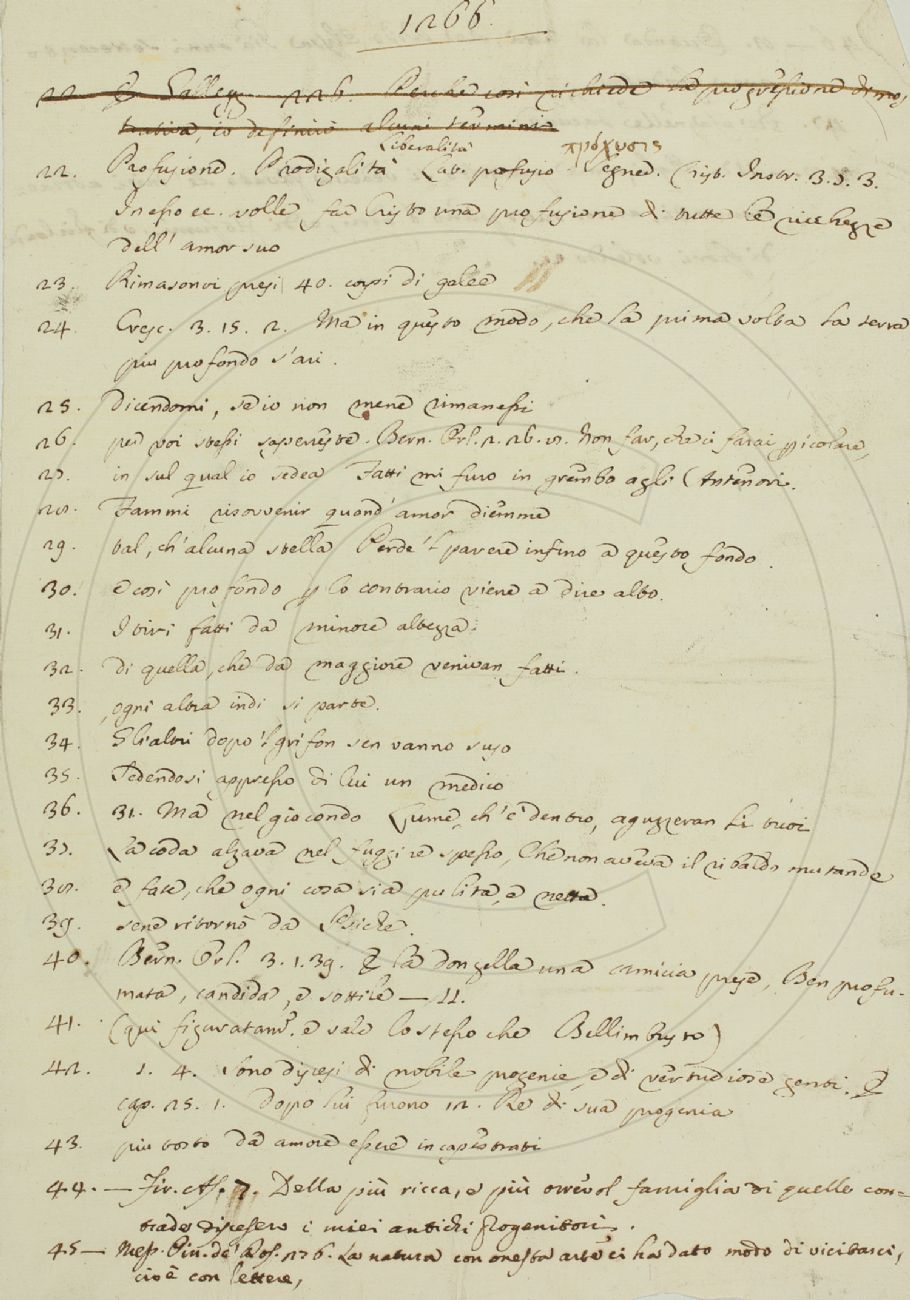 1266.
22. E Galleg. 226. Perche così richiede la progressione dimos-
trativa, io definirò alcuni termini
Liberalità πρόχυσις
22. Profusione. Prodigalità Lat. profusio. Segner. Crist. Instr. 3. 5. 3.
In esso ec. volle far Cristo una profusione di tutte le ricchezze
dell' amor suo
23. Rimasonvi presi 40. corpi di galee
24. Cresc. 3. 15. 2. Ma in questo modo, che la prima volta la terra
più profondo s'ari.
25. dicendomi, se io non mene rimanessi
26. per voi stessi sapereste. Bern. Orl. 2. 26. 17. Non far, che ci farai pericolare,
27. in sul qual io sedea Fatti mi furo in grembo agli Antenori.
28. Fammi risovvenir quand' amor diemme
29. tal, ch'alcuna stella Perde 'l parere infino a questo fondo.
30. e così profondo p lo contrario viene a dire alto.
31. I tiri fatti da minore altezza
32. di quella, che da maggiore venivan fatti.
33. ogni altra indi si parte.
34. Gli altri dopo 'l grifon sen vanno suso
35. Sedendosi appresso di lui un medico
36. 31. Ma nel giocondo Lume, ch' è dentro, aguzzeran li tuoi
37. La coda alzava nel fuggire spesso, Che non aveva il ribaldo mutande
38. e fate, che ogni cosa sia pulita, e netta.
39. sene ritornò da Psiche.
40. Bern. Orl. 3. 1. 39. E la donzella una camicia prese, Ben profu-
mata, candida, e sottile — 11.
41. (qui figuratam. e vale lo stesso che Bellimbusto)
42. 1. 4. Sono discesi di nobile progenie, e di vertudiose genti. E
cap. 25. 1. Dopo lui furono 12. Re di sua progenia
43. più tosto da amore essere incapestrati
44. — Fir. As. 7. Della più ricca, e più orrevol famiglia di quelle con=
trade discesero i miei antichi Progenitori.
45 — Mess. Cin. de' Ros. 176. La natura con onesta arte ci ha dato modo di vicitarci,
cioè con lettere,